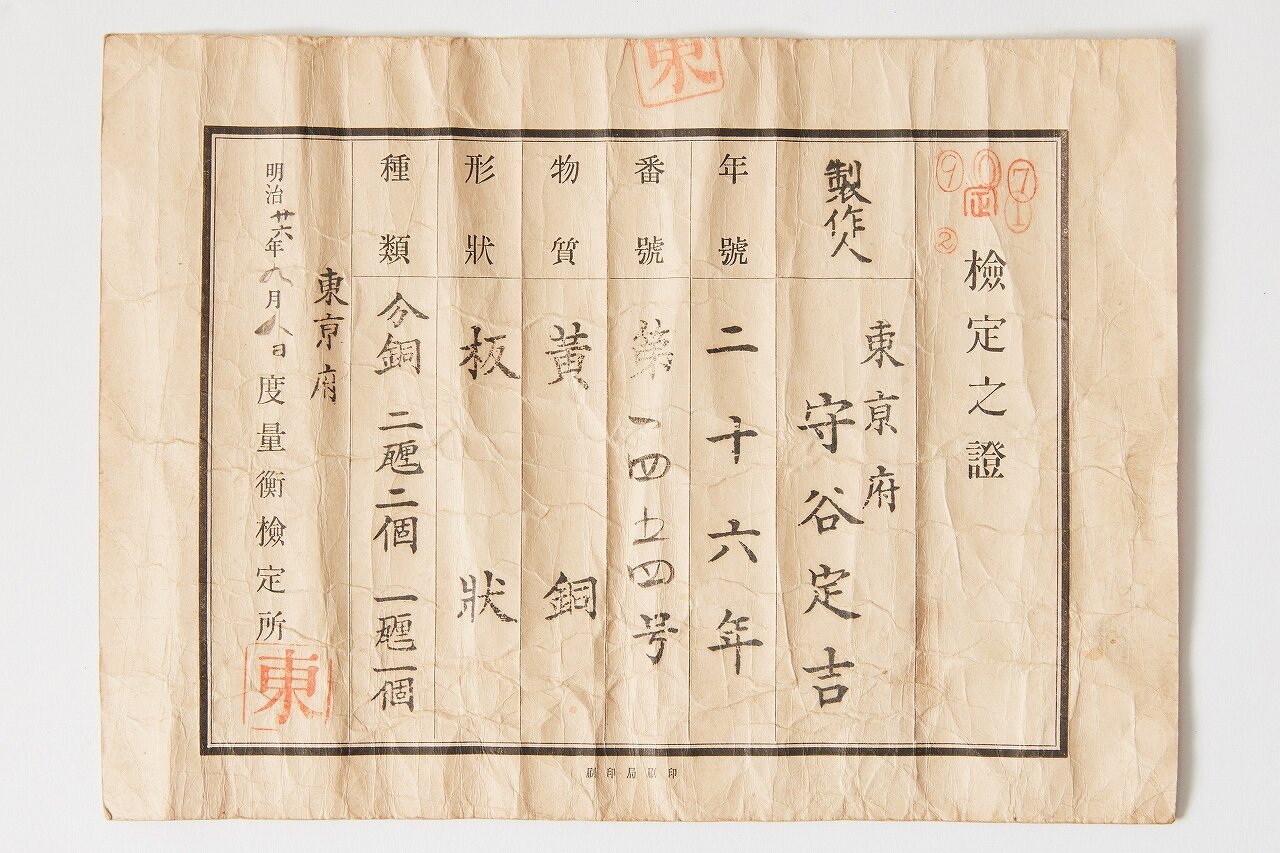 東
定
檢定之證
製作人
東京府
守谷定吉
年號
二十六年
番號
第一四五四号
物質
黃銅
形狀
板狀
種類
分銅 二甅二個 一甅一個
東京府
明治廿六年九月八日度量衡檢定所
東
印刷局印刷